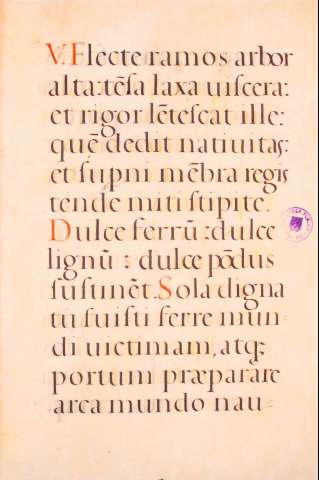 V. Flecte ramos arbor
alta: tẽſa laxa uiſcera:
et rigor lẽteſcat ille:
quẽ dedit natiuitas:
et ſupni mẽbra regis
tende miti ſtipite.
Dulce ferrũ: dulce
lignũ: dulce põdus
ſuſtinẽt. Sola digna
tu fuiſti ferre mun=
di uictimam, atq;
portum præparare
arca mundo nau=